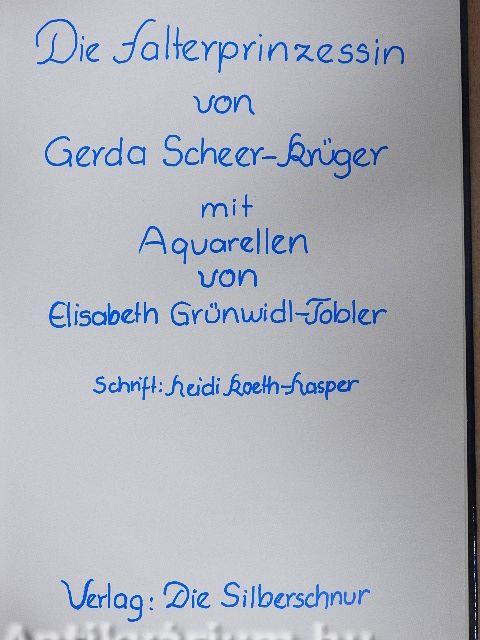 Die Falterprinzessin
von
Gerda Scheer-Krüger
mit
Aquarellen
von
Elisabeth Grünwidl-Tobler
Schrift: Heidi Koeth-Kasper
Verlag: Die Silberschnur